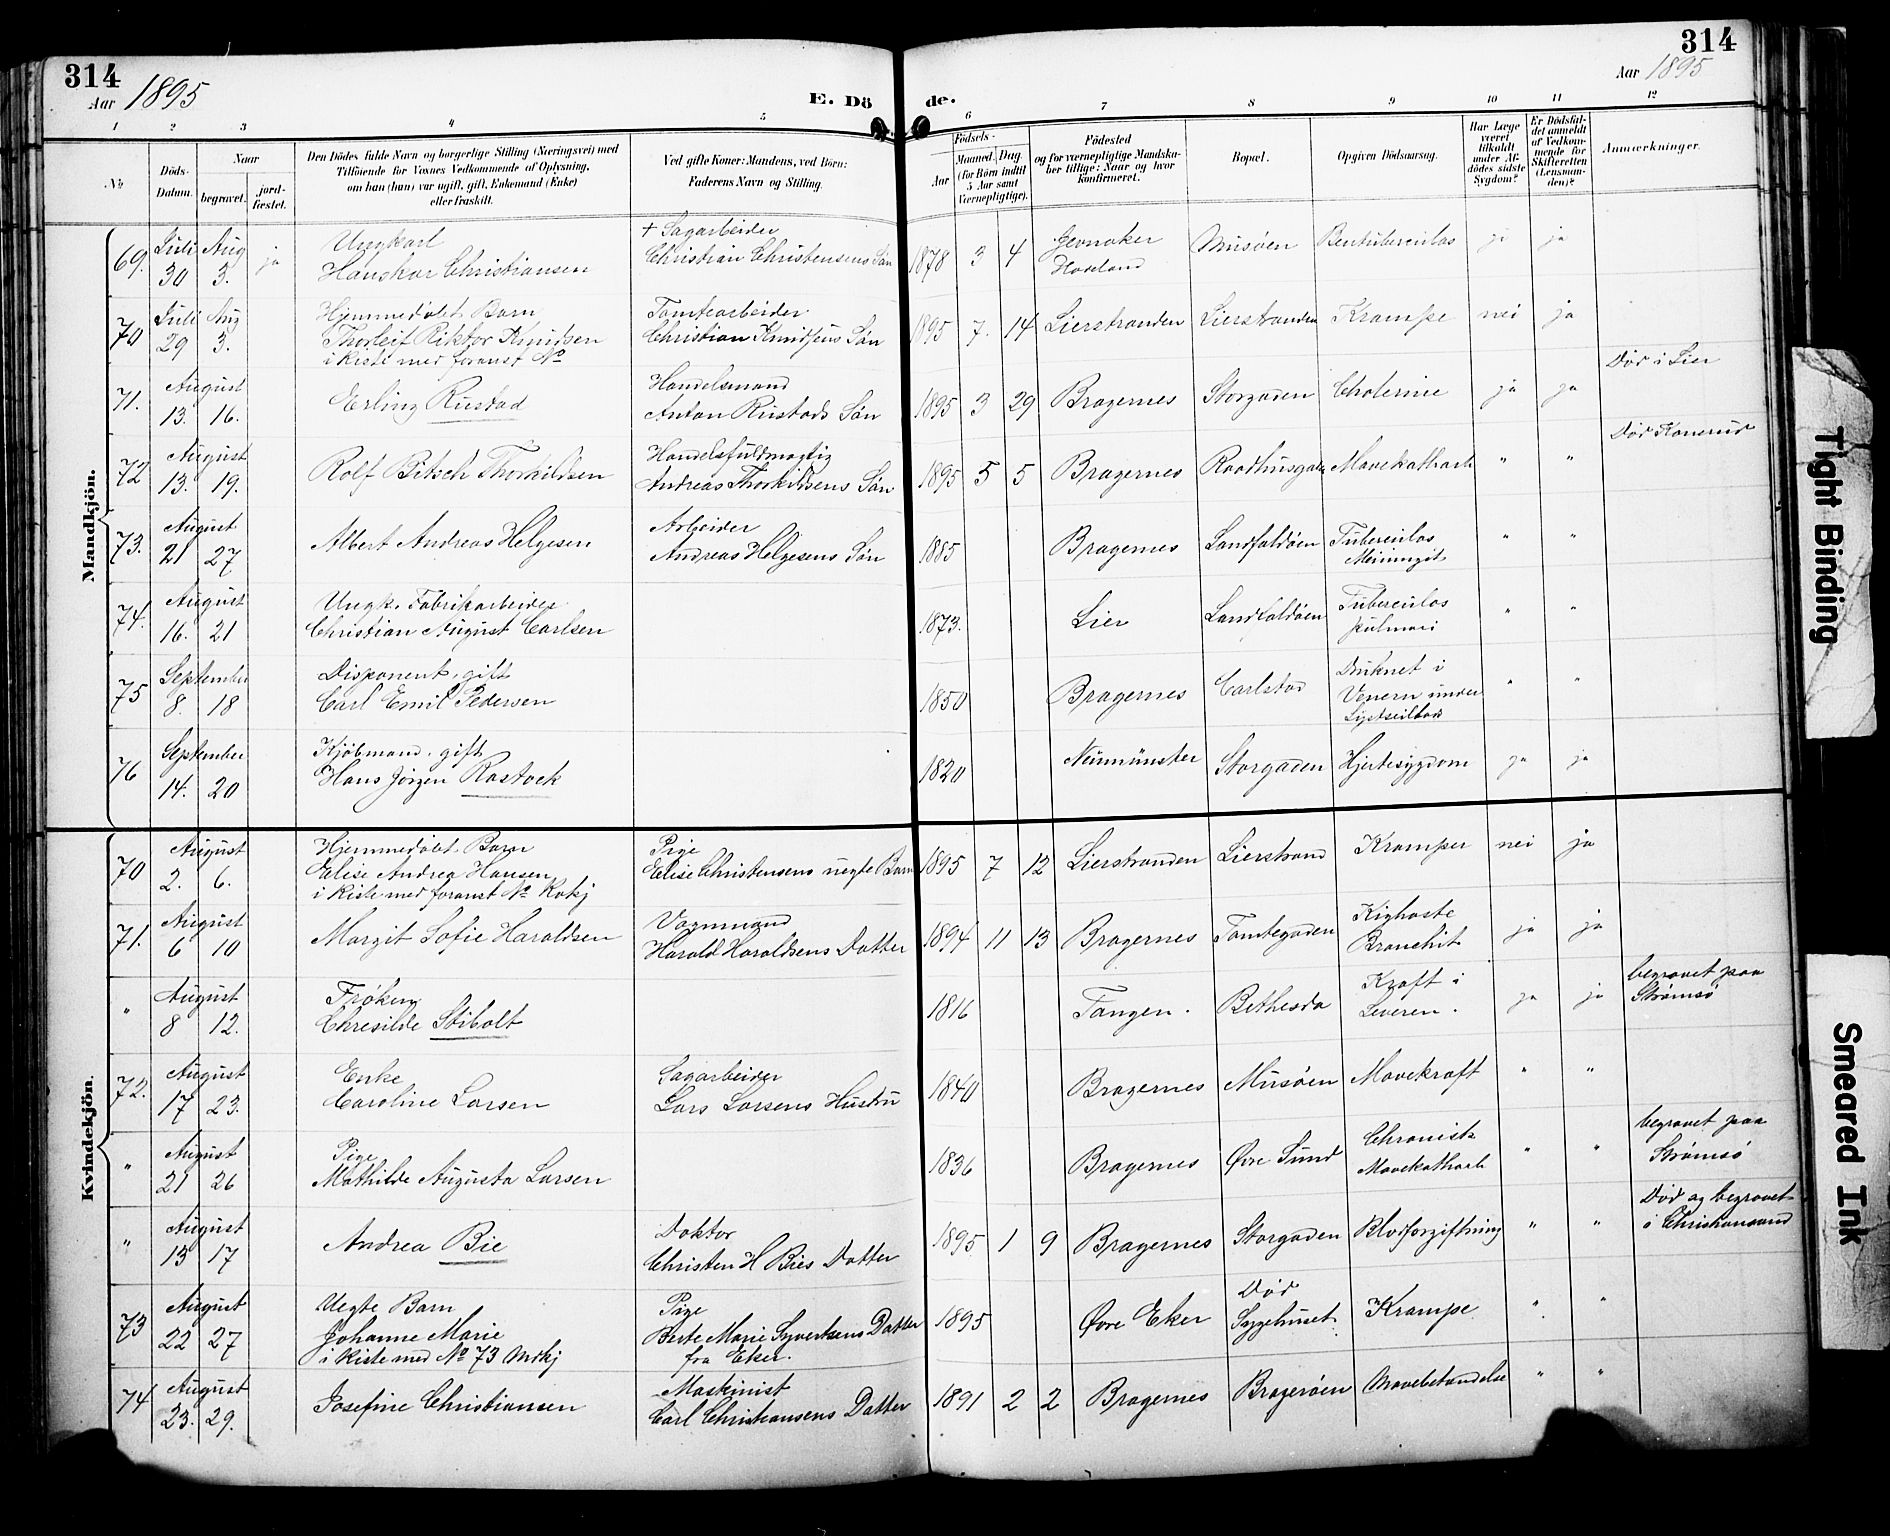 314
Aar 1895
E. Dö
de.
314
Aar 1895
1 2 3 4 5 6 7 8 9 10 11 12
No
Döds-Datum.
Naar
begravet.
jord-fæstet.
Den Dödes fulde Navn og borgerlige Stilling (Næringsvei) med
Tilföiende for Voxnes Vedkommende af Oplysning,
om han (hun) var ugift, gift, Enkemand (Enke)
eller fraskilt.
Ved gifte Koner: Mandens, ved Börn:
Faderens Navn og Stilling.
Födsels-
Aar
Maaned. Dag.
(for Börn indtil
5 Aar samt
Værnepligtige).
Födested
og for værnepligtige Mandska-
ber tillige: Naar og hvor
konfirmeret.
Bopæl.
Opgiven Dödsaarsag.
Har Læge
været
tilkaldt
under Af-
dödes sidste
Sygdom?
Er Dödsfal-
det anmeldt
af Vedkom-
mende for
Skifteretten
(Lensman-
den)?
Anmærkninger.
Mandkjön.
69. Juli 30 Aug 3. ja
Ungkarl
Hanskar Christiansen
+ Sagarbeider
Christian Christensens Sön
1878 3 4
Jevnaker
Hadeland
Musöen
ja ja
70 Juli 29 Aug 3.
Hjemmedöbt Barn
Thorleif Viktor Knudsen
i kiste med foranst No
Tomtearbeider
Christian Knudsens Sön
1895 7. 14 Lierstranden Lierstranden Krampe nei ja
71. August 13. 16.
Erling Rustad
Handelsmand
Anton Rustads Sön
1895 3 29 Bragernes Storgaden Cholerine ja ja
Död i Lier
72 August 13. 19.
Rolf Bitsch Thorkildsen
Handelsfuldmægtig
Andreas Thorkildsens Sön
1895 5 5 Bragernes Raadhusgaden Mavekatharh " "
Död Konnerud
73. August 21 27
Albert Andreas Helgesen
Arbeider
Andreas Helgesens Sön
1885 Bragernes Landfaldöen
Tuberculos
Meiningit
" "
74. August 16. 21
Ungk. Fabrikarbeider
Christian August Carlsen
1873. Lier Landfaldöen
Tuberculos
pulmon
" "
75 September 8. 18
Disponent, gift
Carl Emil Pedersen
1850 Bragernes Carlstad
Druknet i
Venern under
Lystseilads
" "
76 September 14. 20
Kjöbmand, gift
Hans Jörgen Rostock
1820 Neumünster Storgaden Hjertesygdom ja ja
Kvindekjön.
70 August 2. 6.
Hjemmedöbt Barn
Elise Andrea Hansen
i kiste med foranst No Kvkj
Pige
Elise Christensens uegte Barn
1895 7 12 Lierstranden Lierstrand Kramper nei ja
71. August 6 10
Margit Sofie Haraldsen
Vognmand
Harald Haraldsens Datter
1894 11 13 Bragernes Tomtegaden
Kighoste
Bronchit
ja ja
" August 8 12.
Fröken
Chresilde Stibolt
1816 Tangen. Bethesda
Kræft i
Leveren.
ja ja
begravet paa
Strömsö
72. August 17 23.
Enke
Caroline Larsen
Sagarbeider
Lars Larsens Hustru
1840 Bragernes Musöen Mavekræft " "
" August 21 26
Pige
Mathilde Augusta Larsen
1836 Bragernes Øvre Sund
Chronisk
Mavekatharh
" "
begravet paa
Strømsö
" August 13 17
Andrea Bie
Doktor
Christen H Bies Datter
1895 1 9 Bragernes Storgaden Blodforgiftning " "
Död og begravet
i Christiansand
73 August 22 27
Uegte Barn
Johanne Marie
i kiste med No 73 Mdkj
Pige
Berte Marie Syvertsens Datter
fra Eker.
1895 Øvre Eker
Död
Sygehuset
Krampe " "
74 August 23. 29.
Josefine Christiansen
Maskinist
Carl Christiansens Datter
1891 2 2 Bragernes Bragerøen Mavebetændelse " "
Tight Binding
Smeared Ink